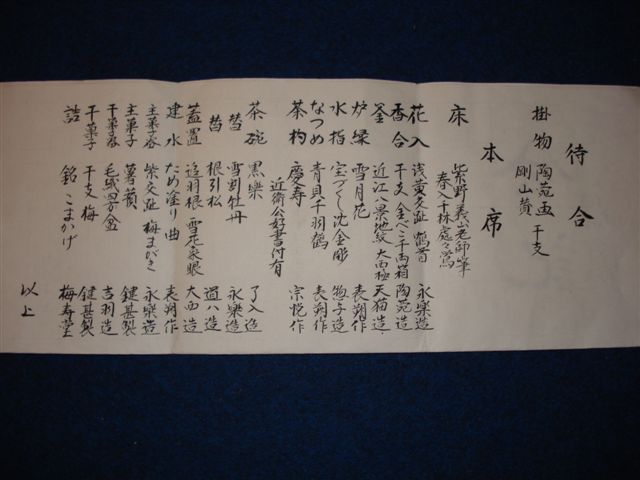 待合
掛物 陶苑画 干支
剛山賛
本席
床 紫野義山老師筆
春入千林處々鶯
花入 浅黄交趾 鶴首 永樂造
香合 干支 金べこ千両箱 陶苑造
釜 近江八景地紋 大西極 天猫造
炉縁 雪月花 表朔作
水指 宝づくし沈金彫 惣子造
なつめ 青貝千羽鶴 表朔作
茶杓 慶寿 宗悦作
近衛公好書付有
茶碗 黒樂 了入造
替 雪割牡丹 永樂造
替 根引松 道八造
蓋置 追羽根 大西造
建水 ため塗り曲 表朔作
主菓子器 紫交趾 梅まがき 永樂造
主菓子 薯蕷 鍵甚製
干菓子器 毛織四方盆 吉羽造
干菓子 干支 梅 鍵甚製
詰 銘 こまかげ 梅寿堂
以上